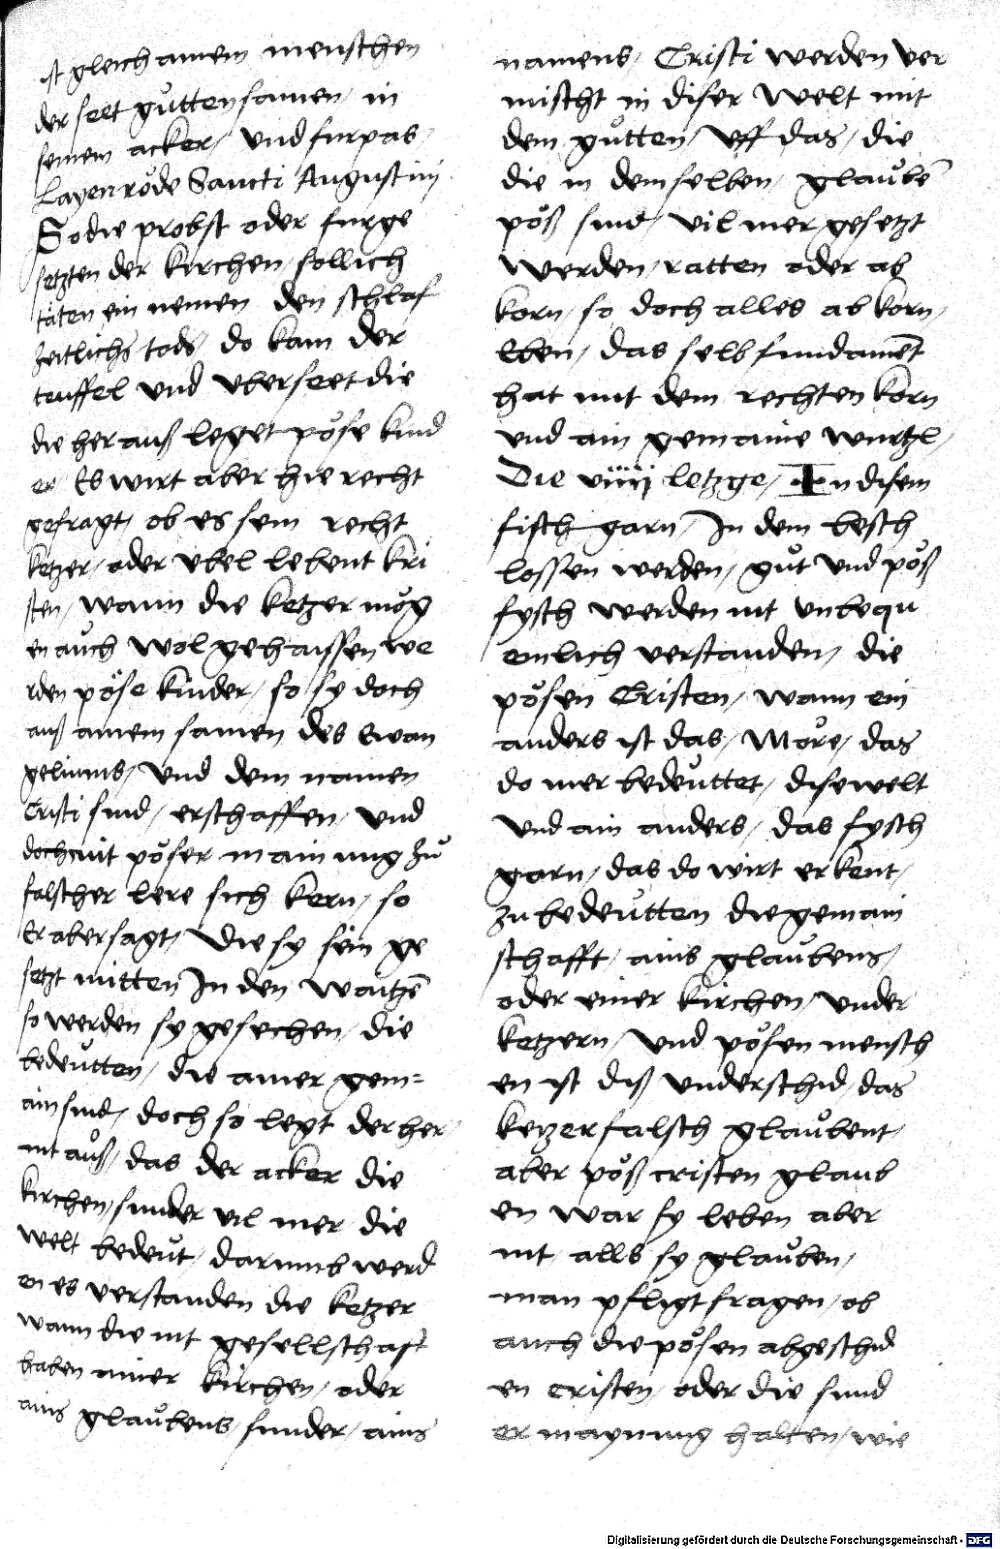 ist gleich ainem menschen
der seet gůtten samen / in
seinem acker / und furpas
Layenrŏde Sancti Augustinj
So die probst oder furge
setzten der kirchen / sollich
täten ein nemen den schlaf
zeitlichs tods / do kam der
teuffel und uberseet die
die her auß leget põse kind
er / Es wirt aber hie recht
gefragt / ob es sein recht
ketzer / oder ubel lebent kri
sten / wann die ketzer mŏg
en auch wol gehaissen we
rden pŏse kinder / so sy doch
auß ainem samen des ewan
geliums / und dem namen
Cristi sind / erschaffen / und
doch mit pŏser mainung zů
falscher lere sich kern / so
Er aber sagt / Die sy sein ge
setzt mitten In den waitzē
so werden sy gesechen / die
bedeůtten / die ainer gem=
ain sind / doch so legt der her /
nit auß / das der acker die
kirchen / sunder vil mer die
welt bedeůt / darumb werd
en es verstanden die ketzer
wann die nit gesellschaft
haben ainer kirchen / oder
ains glaůbens / sunder / ains
namens / Cristi werden ver
mischt in diser welt mit
dem gůtten / Uff das / die
die in demselben / glaůbē
pŏß sind / vil mer gesetzt
werden / ratten oder ab
korn / so doch alles ab korn /
Eben / das selb fundamēt
hat mit dem rechten korn
und ain gemaine wurtzl /
Die viiij letzge / In disem
fisch garn / In dem besch
lossen werden / gůt und pŏß
fysch werden nit unbequ
emlich verstanden / die
pŏsen Cristen / wann ein
anders ist das / Mŏre / das
do mer bedeůttet / dise welt
und ain anders / das fysch
garn / das do wirt erkent /
zu bedeůtten die gemain
schafft / ains glaůbens /
oder einer kirchen / under
ketzern / und pŏsen mensch
en ist diß underschid / das
ketzer falsch glaůbent /
aber pŏß cristen glaub
en war sy leben aber
nit alls sy glaůben /
man pfligt fragen / ob
auch die pŏsen abgeschid
en cristen / oder die sund
er maynung halten / wie
Digitalisierung gefördert durch die Deutsche Forschungsgemeinschaft - DFG